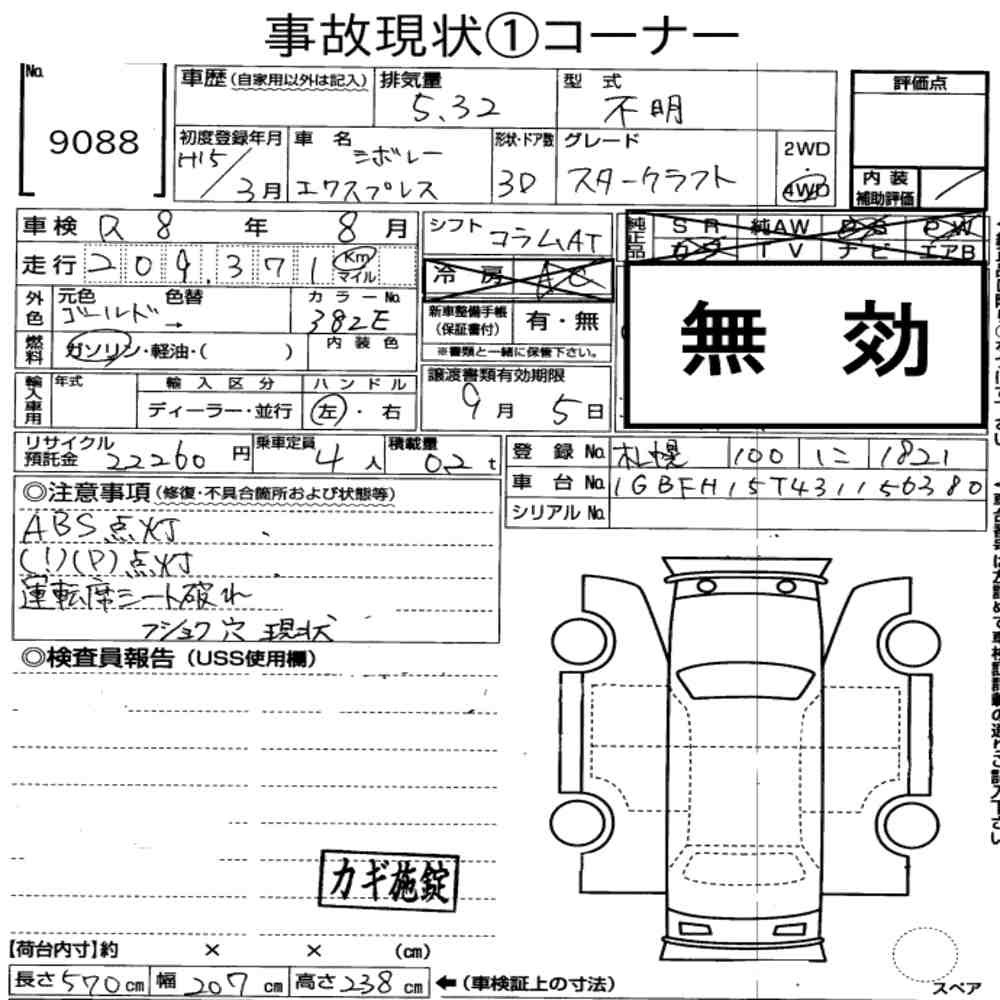 事故現状①コーナー
No.
9088
車歴(自家用以外は記入)
排気量
5.32
型式
不明
評価点
初度登録年月
H15/3月
車名
シボレー
エクスプレス
形状・ドア数
3D
グレード
スタークラフト
2WD
4WD
内装
補助評価
車検 R 8 年 8 月
シフト コラムAT
純正品
SR 純AW PS PW
TV ナビ エアB
走行 209,371 Km
マイル
冷房 AC
外色
元色 色替
ゴールド→
カラーNo.
382E
新車整備手帳
(保証書付)
有・無
※書類と一緒に保管下さい。
無効
燃料
ガソリン・軽油・( )
内装色
輸入車用
年式
輸入区分
ディーラー・並行
ハンドル
左・右
譲渡書類有効期限
9月5日
リサイクル
預託金 22260 円
乗車定員
4人
積載量
0.2t
登録No. 札幌 100 に 1821
車台No. 1GBFH15T431156380
シリアルNo.
◎注意事項(修復・不具合箇所および状態等)
ABS点灯
(!)(P)点灯
運転席シート破れ
フショク穴 現状
◎検査員報告(USS使用欄)
カギ施錠
【荷台内寸】約 × × (cm)
長さ570cm 幅207cm 高さ238cm ←(車検証上の寸法)
スペア